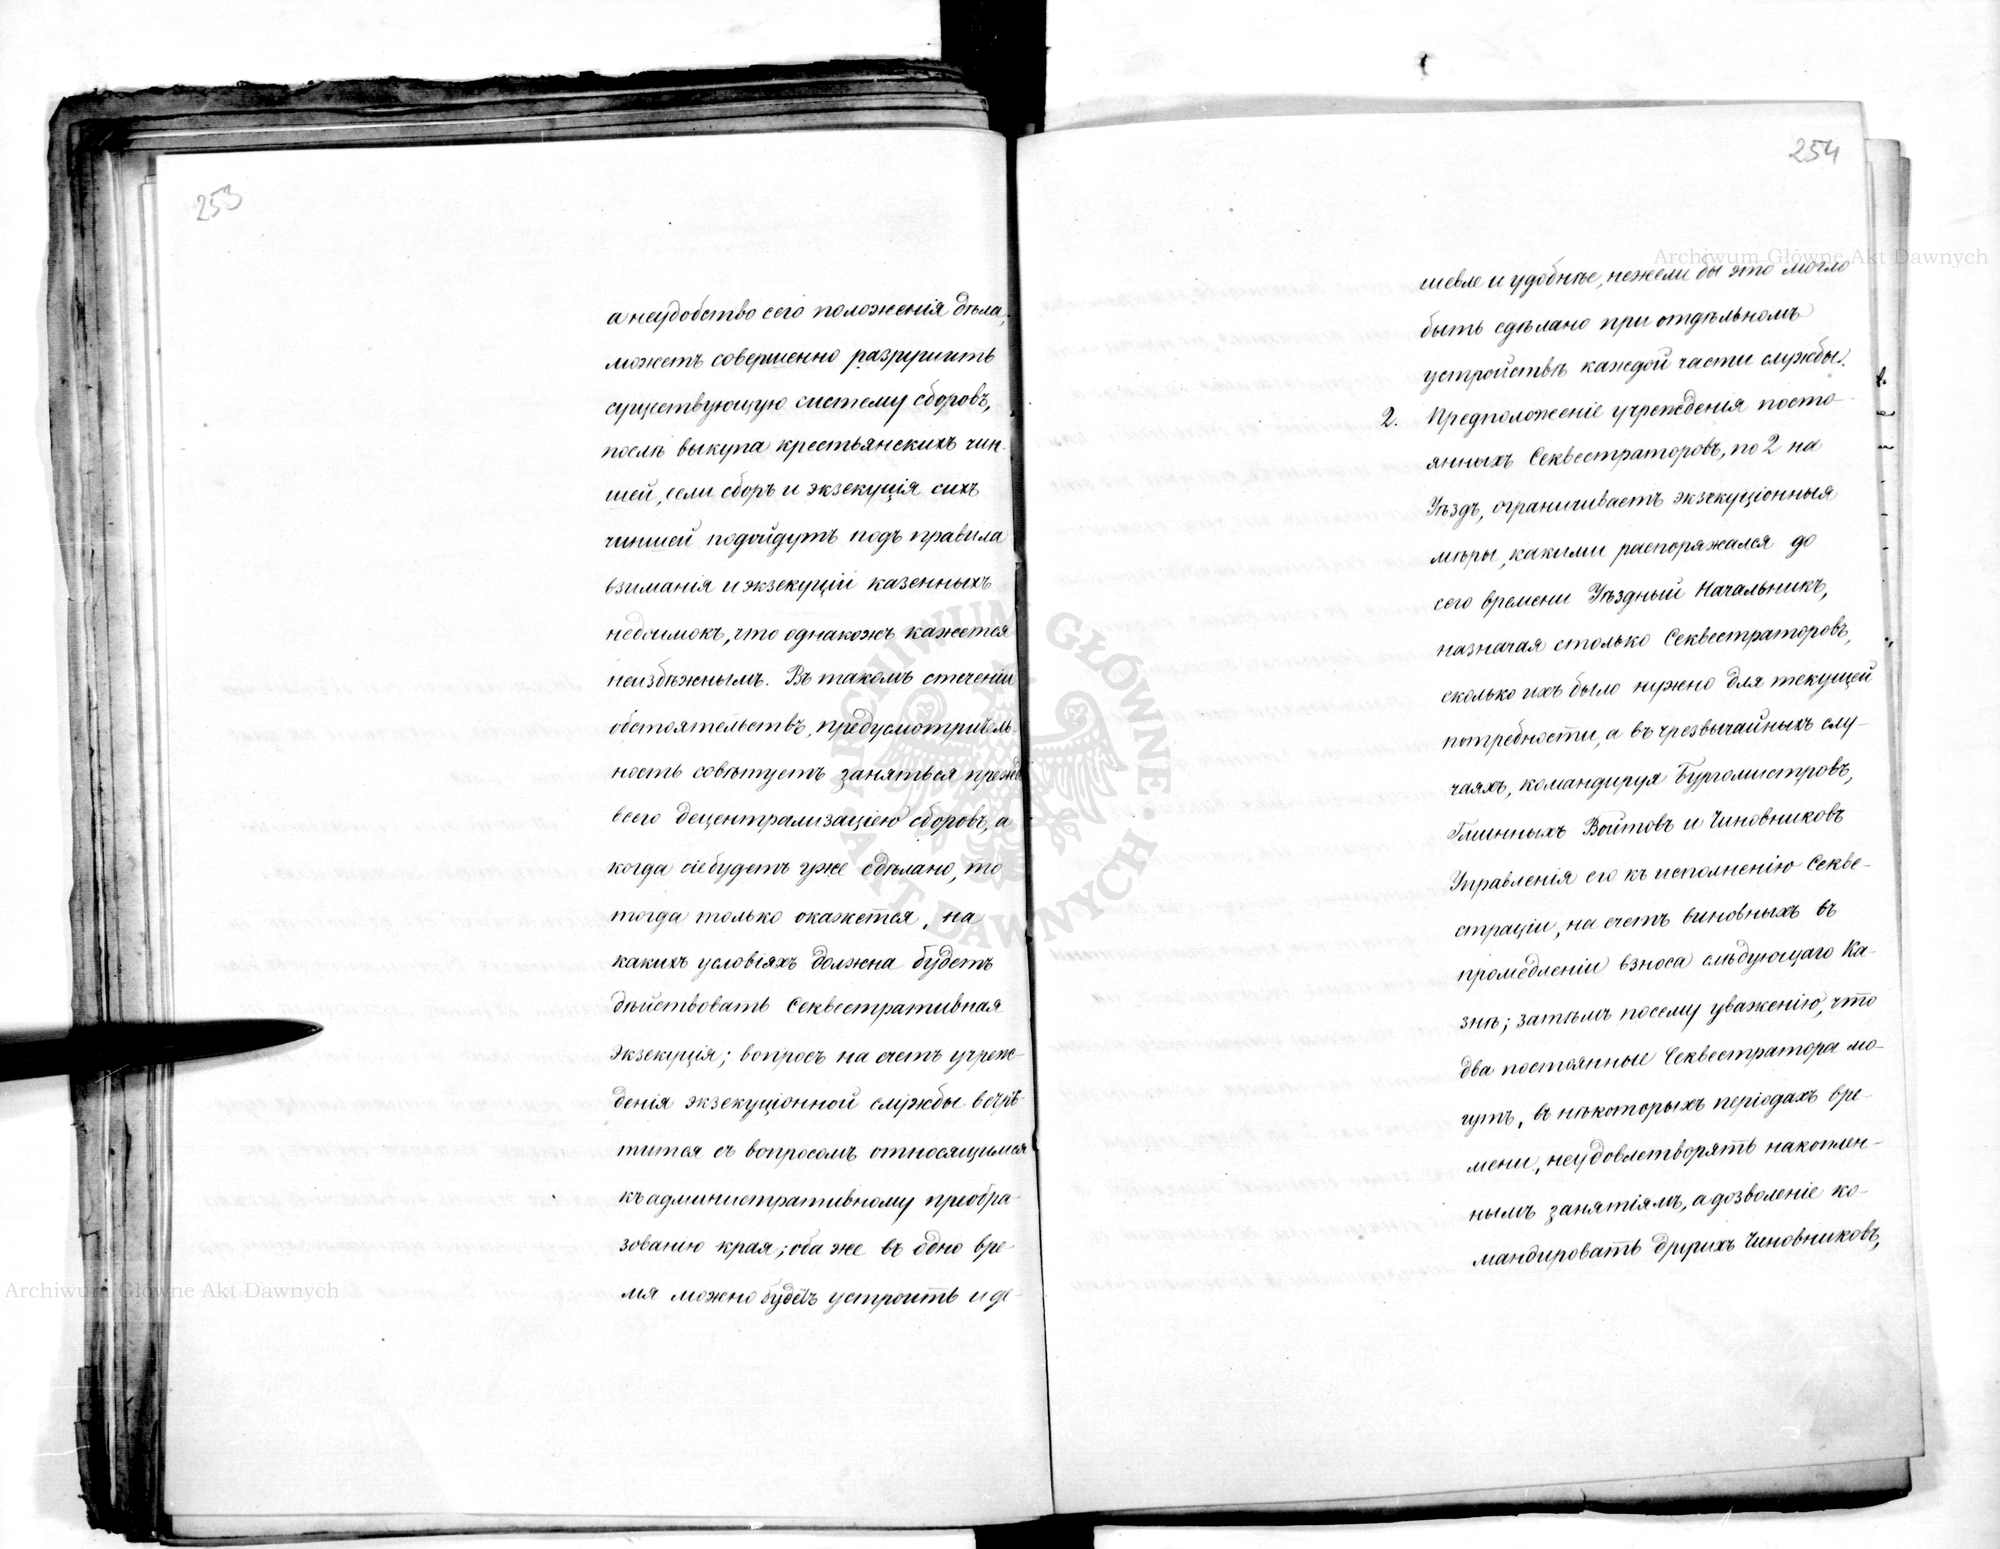 253
а неудобство сего положенія дѣла,
можетъ совершенно разрушить
существующую систему сборовъ,
послѣ выкупа крестьянскихъ чин-
шей, если сборъ и экзекуція сихъ
чиншей подойдутъ подъ правила
взиманія и экзекуціи казенныхъ
недоимокъ, что однакожъ кажется
неизбѣжнымъ. Въ такомъ стеченіи
обстоятельствъ, предусмотритель-
ность совѣтуетъ заняться прежде
всего децентрализаціею сборовъ, а
когда сіе будетъ уже сдѣлано, то
тогда только окажется, на
какихъ условіяхъ должна будетъ
дѣйствовать Секвестративная
Экзекуція; вопросъ на счетъ учреж-
денія экзекуціонной службы встрѣ-
тится съ вопросомъ относящимся
къ административному преобра-
зованію края; оба же въ одно вре-
мя можно будетъ устроить и де-
254
шевле и удобнѣе, нежели бы это могло
быть сдѣлано при отдѣльномъ
устройствѣ каждой части службы.
2. Предположеніе учрежденія посто-
янныхъ Секвестраторовъ, по 2 на
Уѣздъ, ограничиваетъ экзекуціонныя
мѣры, какими распоряжался до
сего времени Уѣздный Начальникъ,
назначая столько Секвестраторовъ,
сколько ихъ было нужно для текущей
потребности, а въ чрезвычайныхъ слу-
чаяхъ, командируя Бургомистровъ,
Гминныхъ Войтовъ и Чиновниковъ
Управленія его къ исполненію Секве-
страціи, на счетъ виновныхъ въ
промедленіи взноса слѣдующаго Ка-
знѣ; затѣмъ посему уваженію, что
два постоянные Секвестратора мо-
гутъ, въ нѣкоторыхъ періодахъ вре-
мени, неудовлетворять накоплен-
нымъ занятіямъ, а дозволеніе ко-
мандировать другихъ Чиновниковъ,
Archiwum Główne Akt Dawnych
Archiwum Główne Akt Dawnych
ARCHIWUM GŁÓWNE AKT DAWNYCH